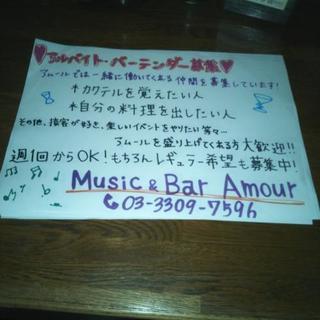 アルバイト・バーテンダー募集
アムールでは一緒に働いてくれる仲間を募集しています!
*カクテルを覚えたい人
*自分の料理を出したい人
その他、接客が好き、楽しいイベントをやりたい等々…
アムールを盛り上げてくれる方大歓迎!!
週1回からOK!もちろんレギュラー希望も募集中!
Music & Bar Amour
03-3309-7596